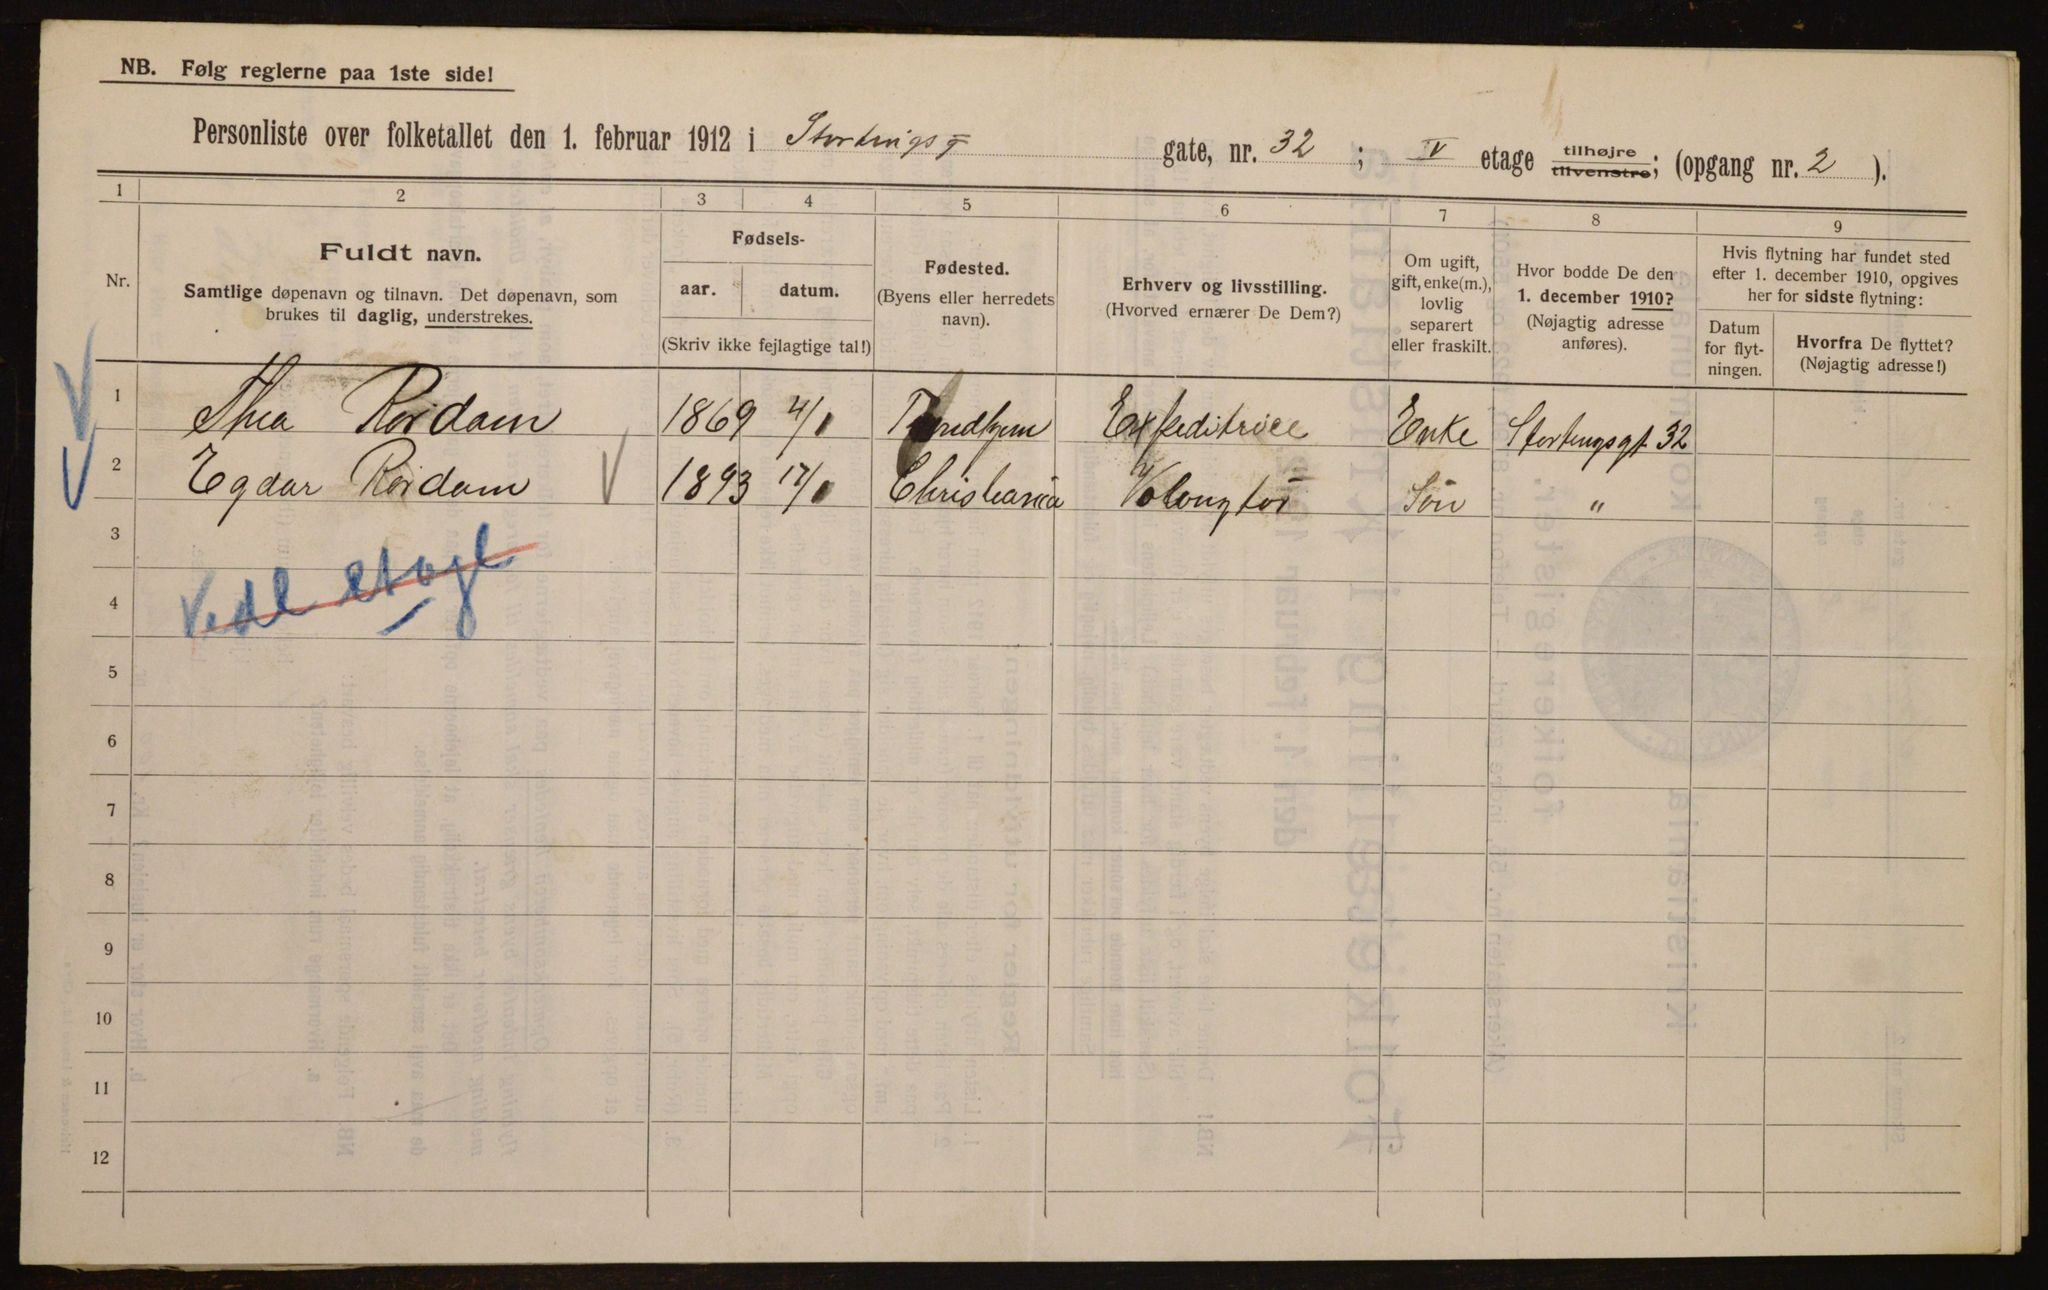 NB. Følg reglerne paa 1ste side!
Personliste over folketallet den 1. februar 1912 i Stortingsg gate, nr. 32 ; V etage tilhøjre tilvenstre; (opgang nr. 2 ).
1 2 3 4 5 6 7 8 9
Nr.
Fuldt navn.
Samtlige døpenavn og tilnavn. Det døpenavn, som
brukes til daglig, understrekes.
Fødsels-
aar. datum.
(Skriv ikke fejlagtige tal!)
Fødested.
(Byens eller herredets
navn).
Erhverv og livsstilling.
(Hvorved ernærer De Dem?)
Om ugift,
gift, enke(m.),
lovlig
separert
eller fraskilt.
Hvor bodde De den
1. december 1910?
(Nøjagtig adresse
anføres).
Hvis flytning har fundet sted
efter 1. december 1910, opgives
her for sidste flytning:
Datum
for flyt-
ningen.
Hvorfra De flyttet?
(Nøjagtig adresse!)
1 Thea Rördam 1869 Trondhjem Expeditrice Enke Stortingsgt 32
2 Egdar Rördam 1893 Christiania Volongtör Sön "
3
Vedl etage
4
5
6
7
8
9
10
11
12